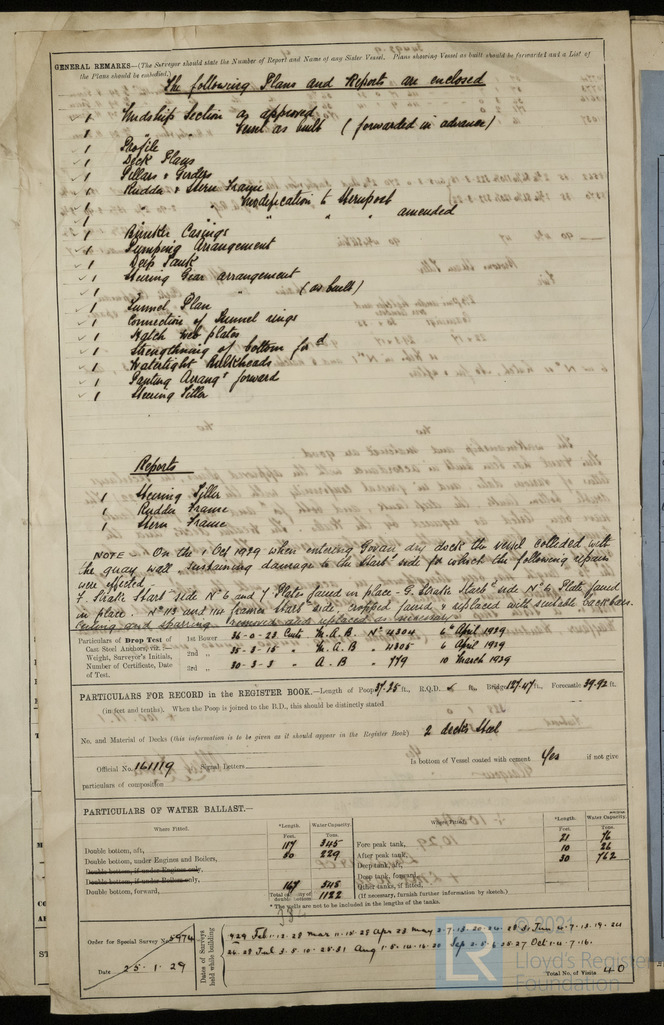 GENERAL REMARKS—(The Surveyor should state the Number of Report and Name of any Sister Vessel. Plans showing Vessel as built should be forwarded and a List of
the Plans should be embodied.)
The following Plans and Reports are enclosed
1 Midship Section as approved
1 " " Vessel as built (forwarded in advance)
1 Profile
1 Deck Plans
1 Pillars & Girders
1 Rudder & Stern Frame
1 " modification to Sternpost
1 " " " amended
1 Bunker Casings
1 Pumping Arrangement
1 Deep Tank
1 Steering Gear arrangement
1 " " (as built)
1 Tunnel Plan
1 Connection of Tunnel rings
1 Hatch web plates
1 Strengthning of bottom ford
1 Watertight Bulkheads
1 Panting Arrangt forward
1 Steering Tiller
Reports
1 Steering Tiller
1 Rudder Frame
1 Stern Frame
NOTE On the 1 Oct 1929 when entering Govan dry dock the vessel collided with
the quay wall sustaining damage to the Starbd side for which the following repairs
were effected.
F. Strake Starbd side No 6 and 7 Plates faired in place - G. Strake Starbd side No 6 Plate faired
in place. No 113 and 114 frames Starbd side, cropped faired & replaced with suitable backbars.
Ceiling and sparring removed and replaced as necessary.
Particulars of Drop Test of
Cast Steel Anchors, viz.:—
Weight, Surveyor's Initials,
Number of Certificate, Date
of Test.
1st Bower 36-0-23 Cwts M.A.B. No 4304 6th April 1929
2nd " 35-3-15 " M.A.B " 4305 6 April 1929
3rd " 30-3-3 " A.B " 779 10 March 1929
PARTICULARS FOR RECORD in the REGISTER BOOK.—Length of Poop 37.35 ft., R.Q.D. ft., Bridge 127.47 ft., Forecastle 39.92 ft.
(in feet and tenths). When the Poop is joined to the B.D., this should be distinctly stated
No. and Material of Decks (this information is to be given as it should appear in the Register Book) 2 decks Steel
Official No. 161119 Signal Letters Is bottom of Vessel coated with cement Yes if not give
particulars of composition
PARTICULARS OF WATER BALLAST.—
Where Fitted. *Length. Water Capacity. Where Fitted. *Length. Water Capacity.
Feet. Tons. Feet. Tons.
Double bottom, aft, 117 345 Fore peak tank, 21 76
Double bottom, under Engines and Boilers, 80 229 After peak tank, 10 26
Double bottom, if under Engines only, Deep tank, aft, 30 762
Double bottom, if under Boilers only, Deep tank, forward,
Double bottom, forward, 167 548 Other tanks, if fitted,
Total capacity of double bottom 1122 (If necessary, furnish further information by sketch.)
* The wells are not to be included in the lengths of the tanks.
Order for Special Survey No. 5974
Date 25.1.29
Dates of Surveys held while building
Total No. of Visits 40
LR
© 2021
Lloyd's Register
Foundation